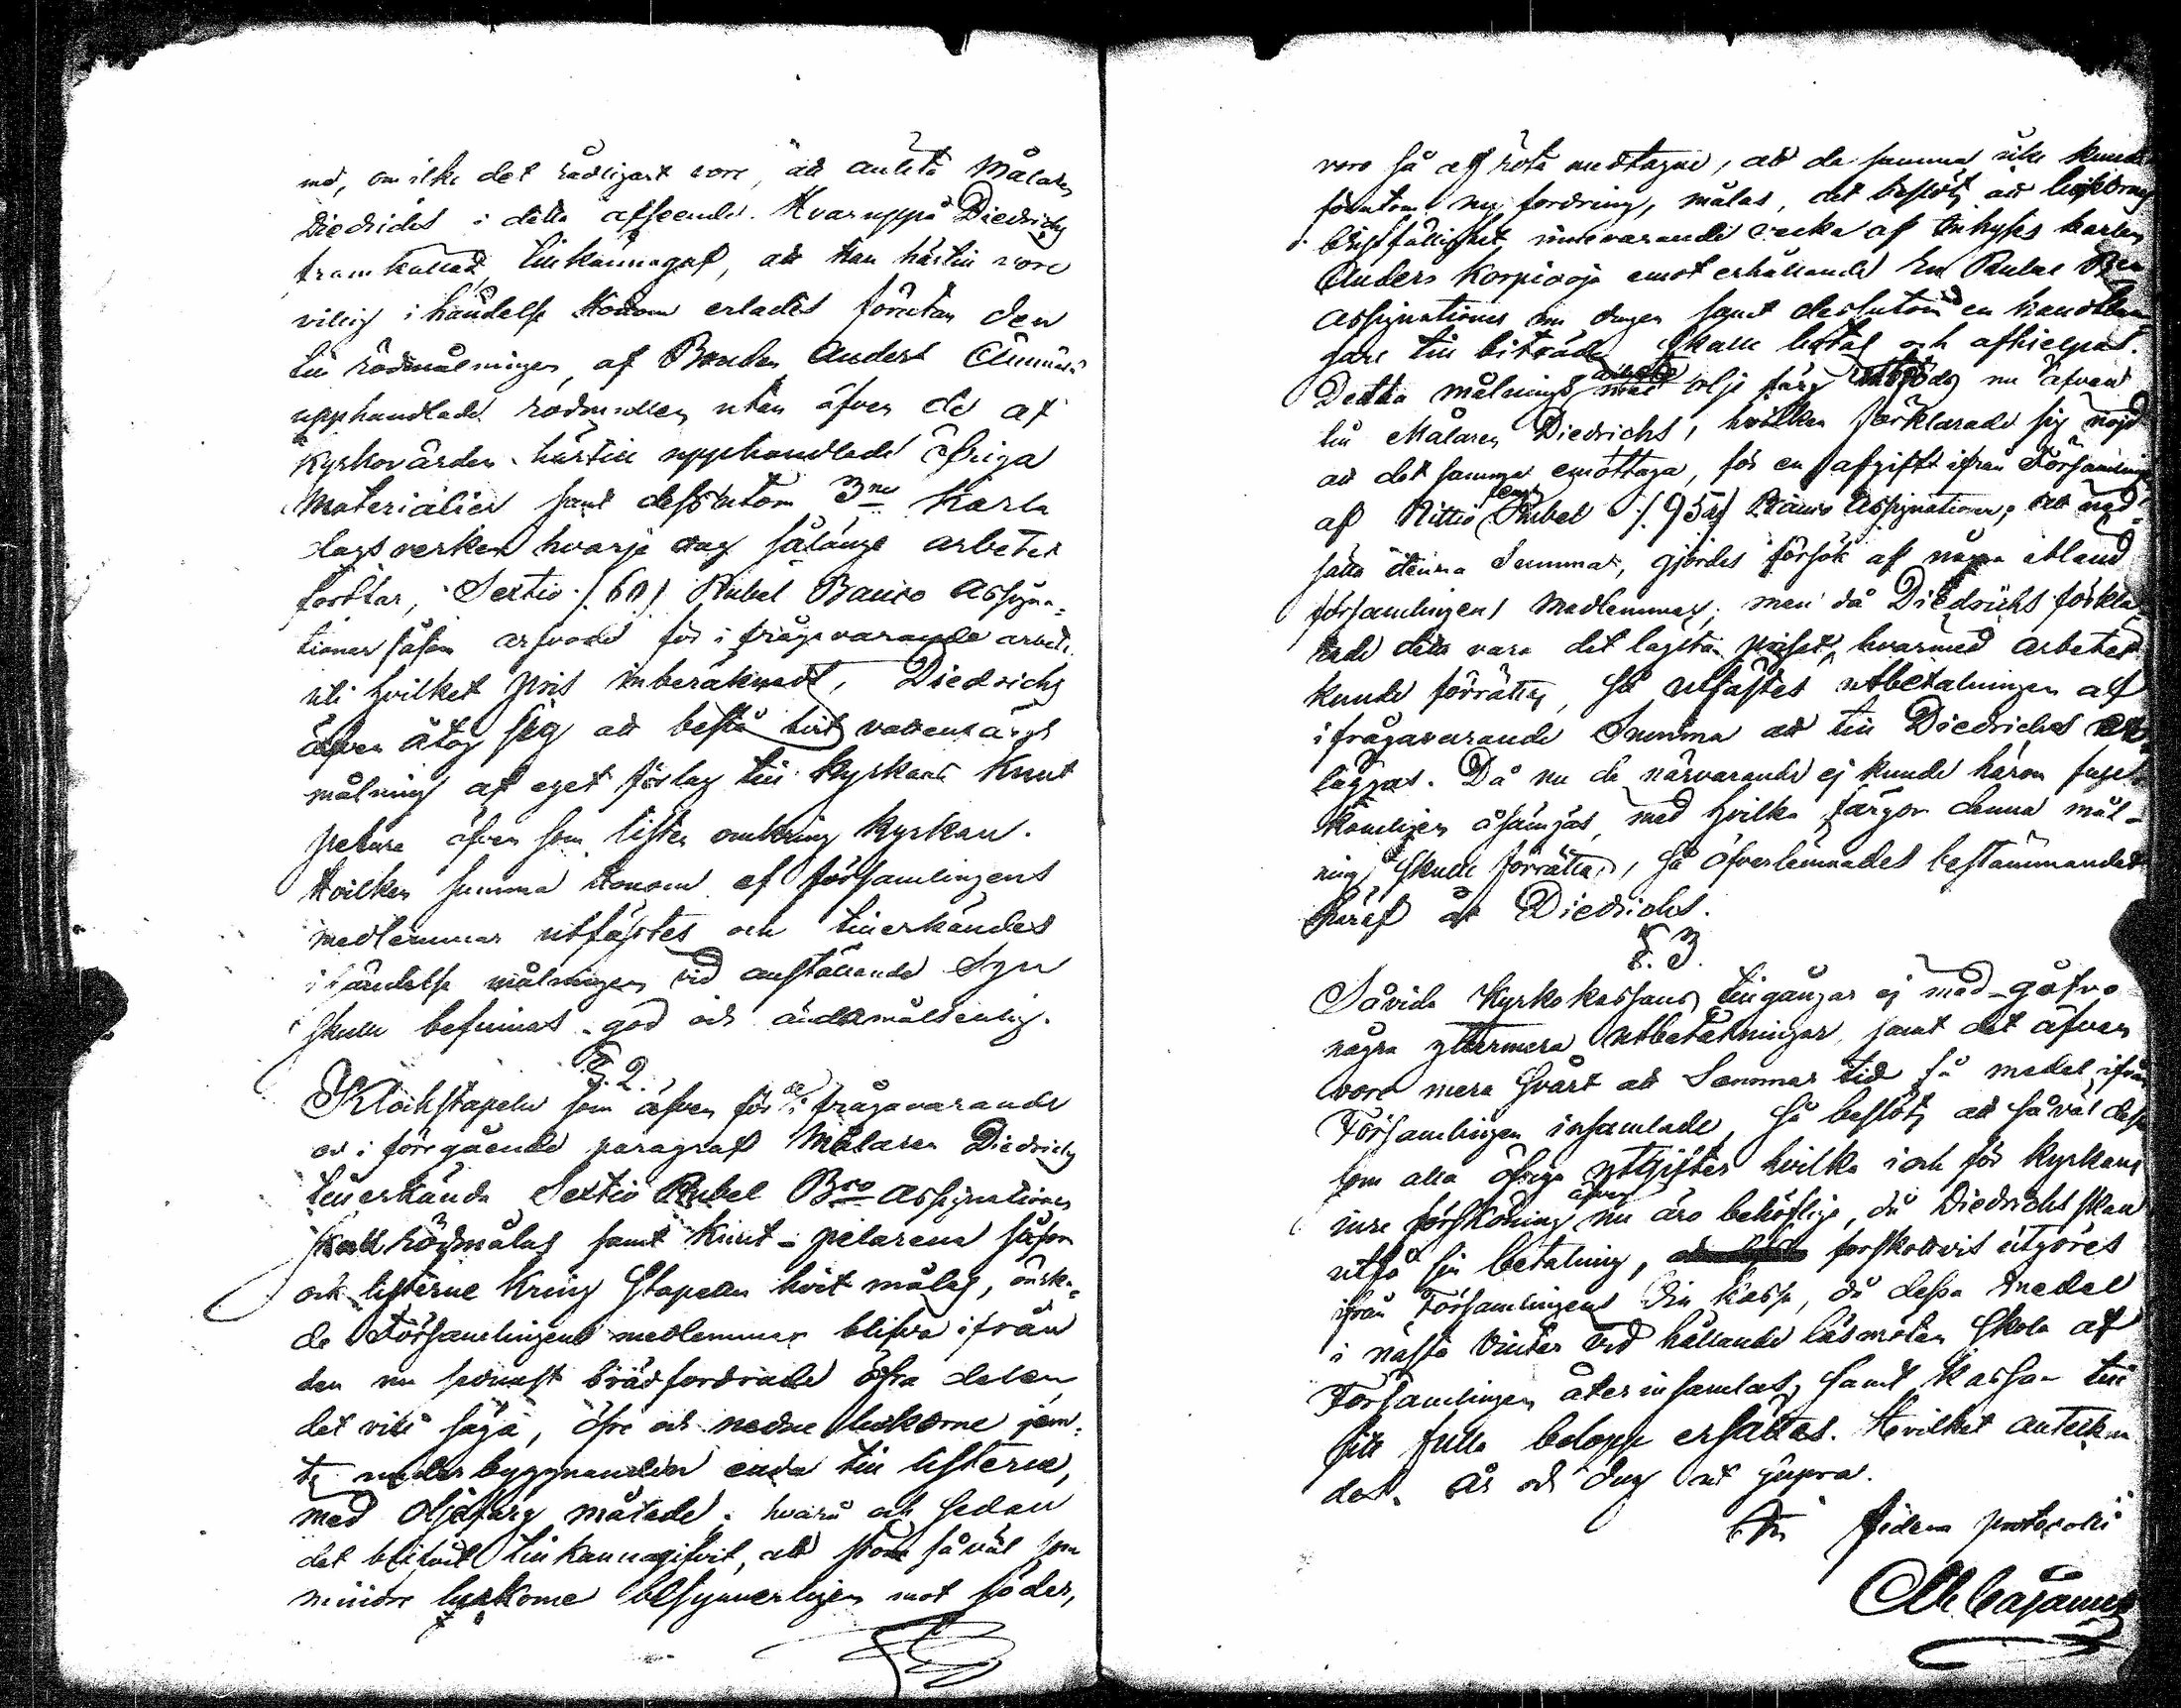 med, om icke det rådligast vore, att anlita Målaren
Diedrichs i detta afseende. Hvaruppå Diedrichs
framkallad, tillkännagaf, att Han härtill vore
villig i händelse Honom erlades förutan den
till rödmålningen, af Bonden Anders
upphandlade rödmullen utan äfven de af
Kyrkovärden härtill upphandlade öfriga
Materialier samt dessutom 3ne Karla
dagsverken hvarje dag sålänge arbetet
fortfar, Sextio /:60:/ Rubel Banco Assigna-
tioner såsom arfvode för i frågavarande arbete
uti hvilket pris inberäknadt, Diedrichs
äfven åtog sig att bestå hvit vattenfärgs
målning af eget förlag till Kyrkans Knut
pelare äfven som lister omkring Kyrkan.
Hvilken summa Honom af församlingens
medlemmar utfästes och tillerkändes
i händelse målningen vid anställande Syn
skulle befinnas god och ändamålsenlig.
§. 2.
Klockstapeln som äfven för de i frågavarande
och i föregående paragraf Målaren Diedrichs
tillerkända Sextio Rubel Bco Assignationer
skall rödmålas samt Knut-pelarena såsom
och listerne kring Stapeln hvit målas, önska-
de Församlingens medlemmar blifva ifrån
den nu sednast brädfordrade öfra delen
det vill säga, öfre och nedre luckorne jem-
te underbyggnanden ända till listerne,
med Oljefärg målade. hvarå och sedan
det blifvit tillkännagifvit, att större såväl som
mindre luckorne besynnerligen mot söder,
voro så af röta medtagne, att de samma icke kunde
förutan ny fordring, målas, det beslöts att luckornes
bristfällighet innevarande vecka af Inhyses karlen
Anders Korpioja emot erhållande En Rubel Bco
Assignationer om dagen samt dessutom en handtlan-
gare till biträde skall botas och afhielpas.
Detta målnings arbete med olje färg nu äfven
till Målaren Diedrichs, hvilken förklarade sig nöjd
att det samma emottaga, för en afgift ifrån Församlingen
af Nittio fem Rubel /:95:/ Banco Assignationer, att ned-
sätta denna Summa, gjordes försök af några ibland
församlingens Medlemmar, men då Diedrichs förkla-
rade detta vara det lägsta priset, hvarmed arbetet
kunde förrättas, så utfästes utbetalningen af
ifrågavarande Summa att till Diedrichs er-
läggas. Då nu de närvarande ej kunde härom full-
komligen åsämjas, med hvilka färgor denna mål-
ning skulle förrättas, så öfverlemnades bestämmandet
häraf åt Diedrichs.
§. 3.
Såvida Kyrkokassans tillgångar ej med-gåfvo
några yttermera utbetalningar, samt det äfven
vore mera svårt att Sommar tid få medel ifrån
Församlingen insamlade, så beslöts att såväl dessa
som alla öfriga utgifter hvilka i och för Kyrkans
inre försköning äfven nu äro behöflige, då Diedrichs skall
utfå sin betalning, forskottvis utgöres
ifrån Församlingens kassa, då dessa medel
i nästa Vinter vid hållande läsmöten skola af
Församlingen återinsamlas, samt kassan till
sitt fulla belopp ersättas. Hvilket anteckna-
des. År och dag ut supra.
In fidem protocolli
Cajanus